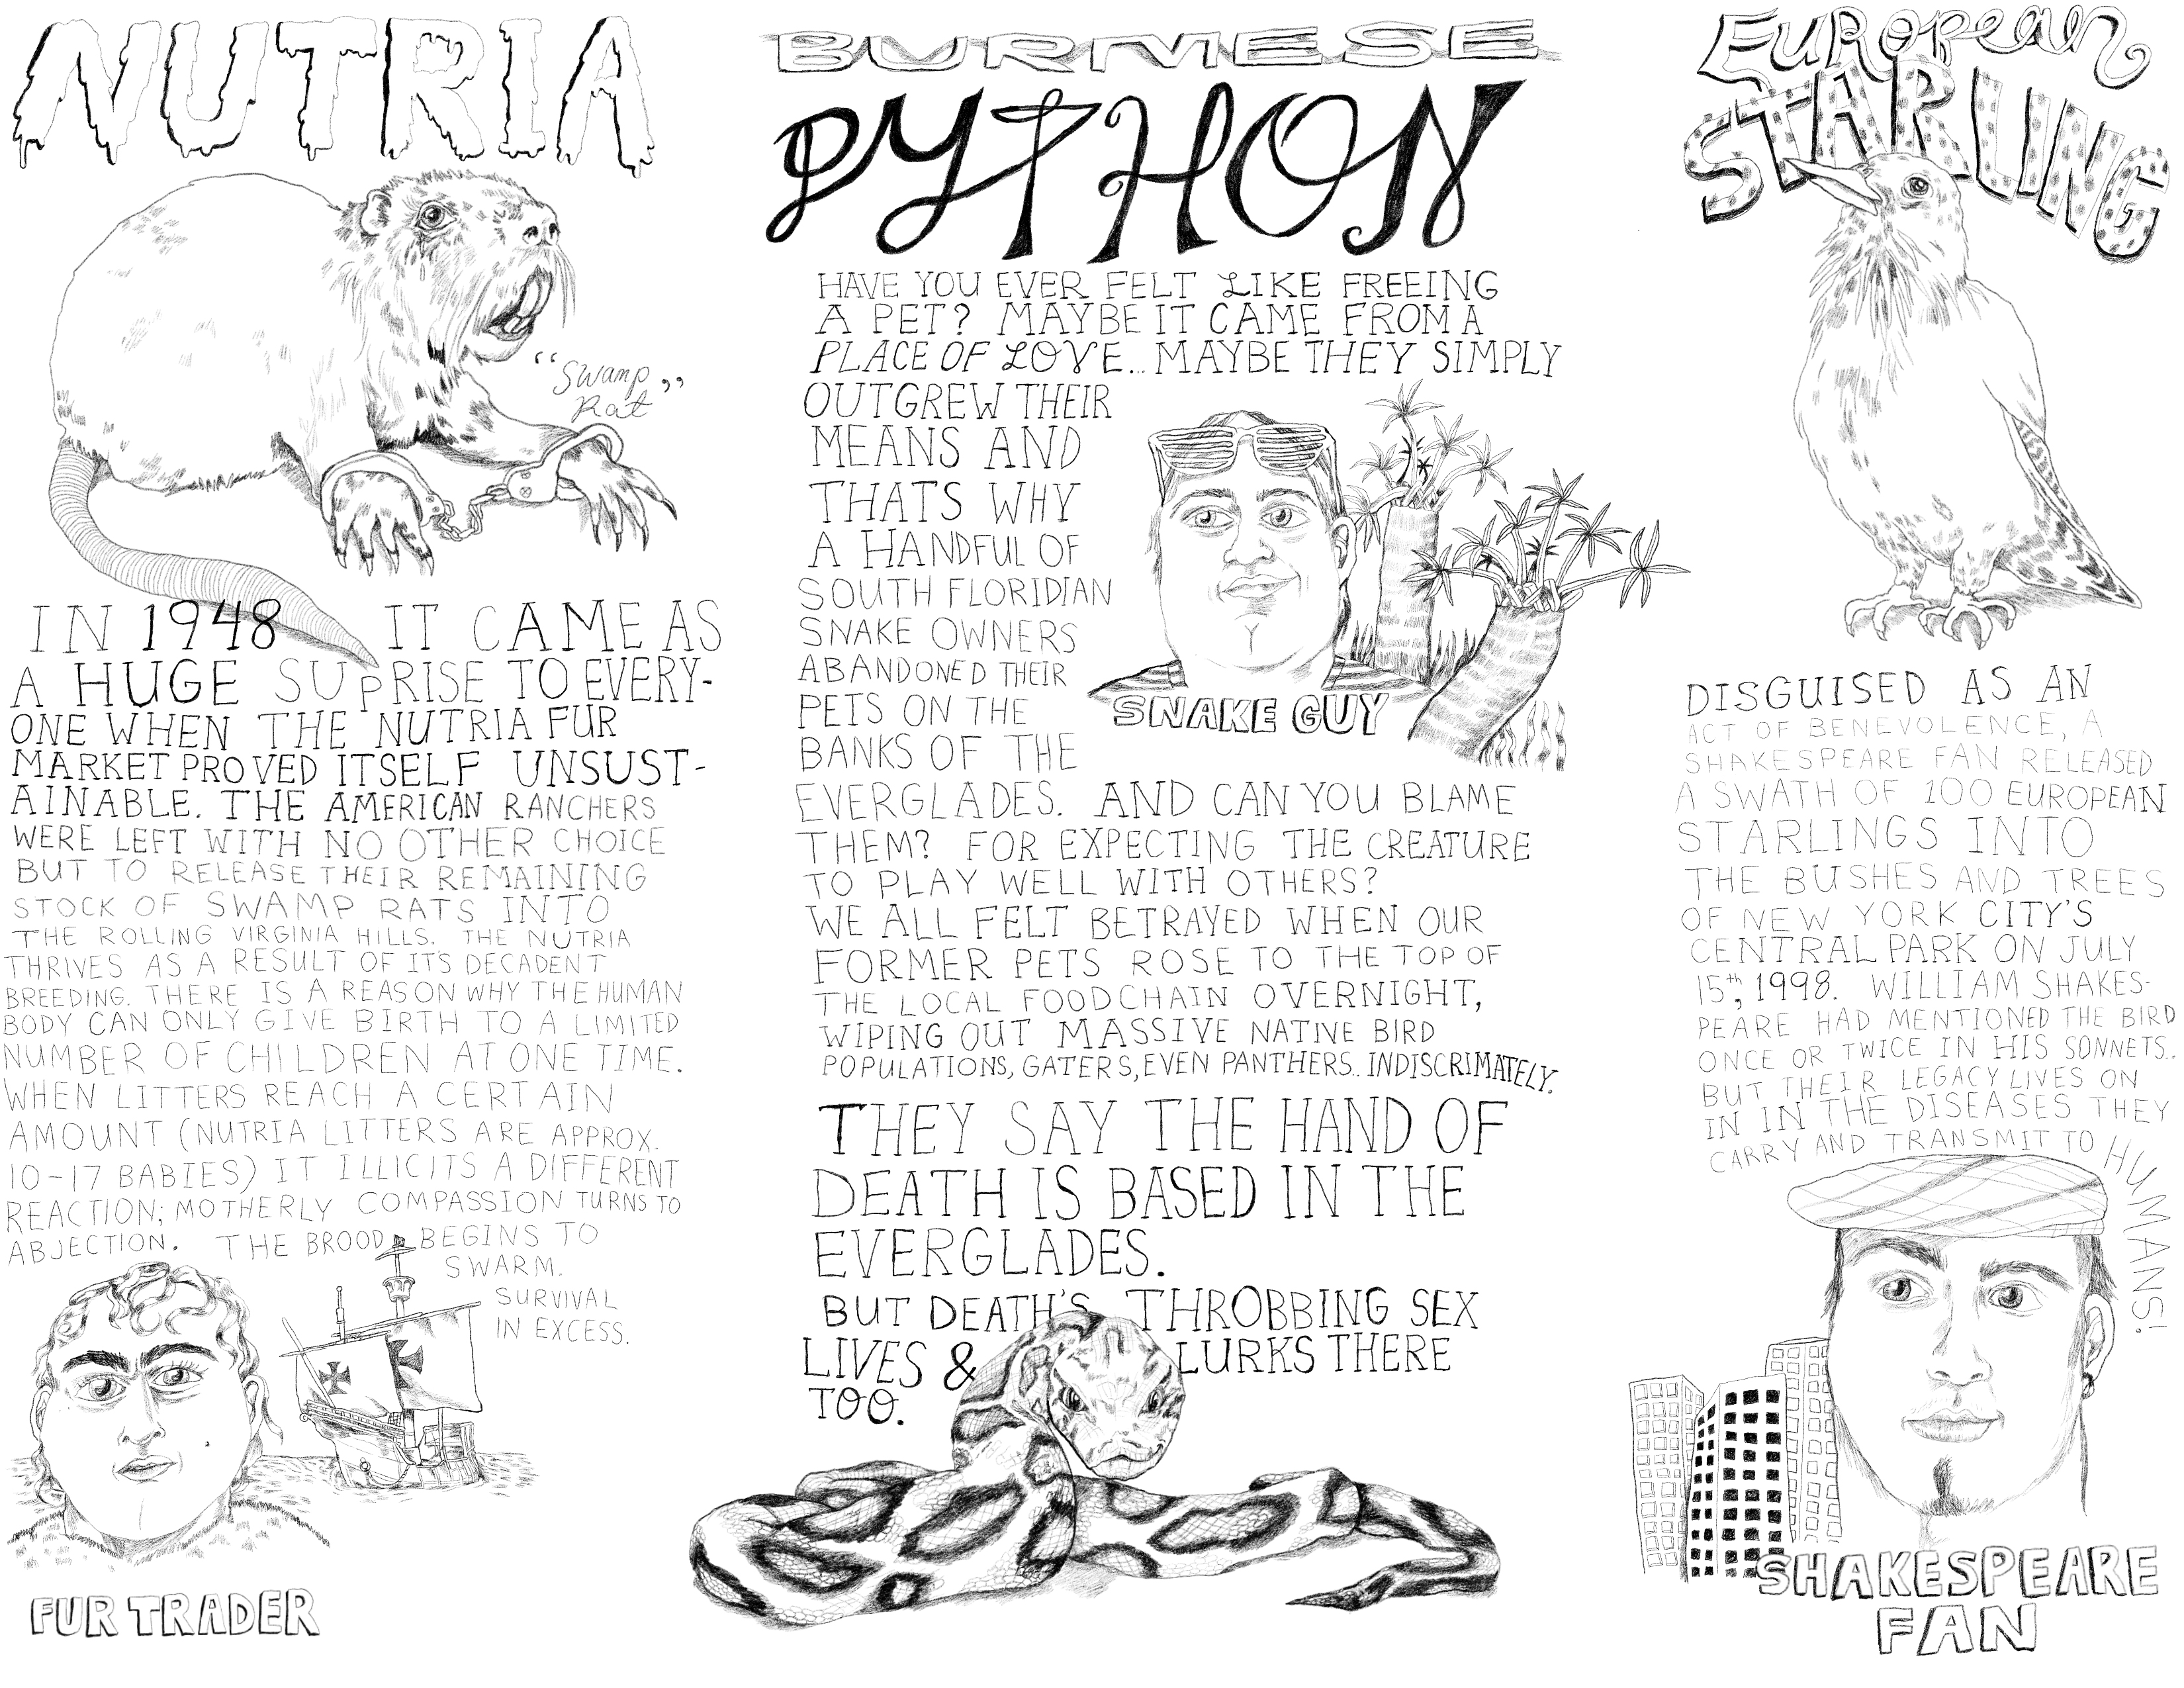 NUTRIA
"Swamp
Rat"
IN 1948 IT CAME AS
A HUGE SUPRISE TO EVERY-
ONE WHEN THE NUTRIA FUR
MARKET PROVED ITSELF UNSUST-
AINABLE. THE AMERICAN RANCHERS
WERE LEFT WITH NO OTHER CHOICE
BUT TO RELEASE THEIR REMAINING
STOCK OF SWAMP RATS INTO
THE ROLLING VIRGINIA HILLS. THE NUTRIA
THRIVES AS A RESULT OF IT'S DECADENT
BREEDING. THERE IS A REASON WHY THE HUMAN
BODY CAN ONLY GIVE BIRTH TO A LIMITED
NUMBER OF CHILDREN AT ONE TIME.
WHEN LITTERS REACH A CERTAIN
AMOUNT (NUTRIA LITTERS ARE APPROX.
10-17 BABIES) IT ILLICITS A DIFFERENT
REACTION; MOTHERLY COMPASSION TURNS TO
ABJECTION. THE BROOD BEGINS TO
SWARM.
SURVIVAL
IN EXCESS.
FUR TRADER
BURMESE
PYTHON
HAVE YOU EVER FELT LIKE FREEING
A PET? MAYBE IT CAME FROM A
PLACE OF LOVE... MAYBE THEY SIMPLY
OUTGREW THEIR
MEANS AND
THATS WHY
A HANDFUL OF
SOUTH FLORIDIAN
SNAKE OWNERS
ABANDONED THEIR
PETS ON THE
BANKS OF THE
SNAKE GUY
EVERGLADES. AND CAN YOU BLAME
THEM? FOR EXPECTING THE CREATURE
TO PLAY WELL WITH OTHERS?
WE ALL FELT BETRAYED WHEN OUR
FORMER PETS ROSE TO THE TOP OF
THE LOCAL FOODCHAIN OVERNIGHT,
WIPING OUT MASSIVE NATIVE BIRD
POPULATIONS, GATERS, EVEN PANTHERS.. INDISCRIMATELY.
THEY SAY THE HAND OF
DEATH IS BASED IN THE
EVERGLADES.
BUT DEATH'S THROBBING SEX
LIVES & LURKS THERE
TOO.
EUROPEAN
STARLING
DISGUISED AS AN
ACT OF BENEVOLENCE, A
SHAKESPEARE FAN RELEASED
A SWATH OF 100 EUROPEAN
STARLINGS INTO
THE BUSHES AND TREES
OF NEW YORK CITY'S
CENTRAL PARK ON JULY
15th, 1998. WILLIAM SHAKES-
PEARE HAD MENTIONED THE BIRD
ONCE OR TWICE IN HIS SONNETS..
BUT THEIR LEGACY LIVES ON
IN IN THE DISEASES THEY
CARRY AND TRANSMIT TO HUMANS!
SHAKESPEARE
FAN